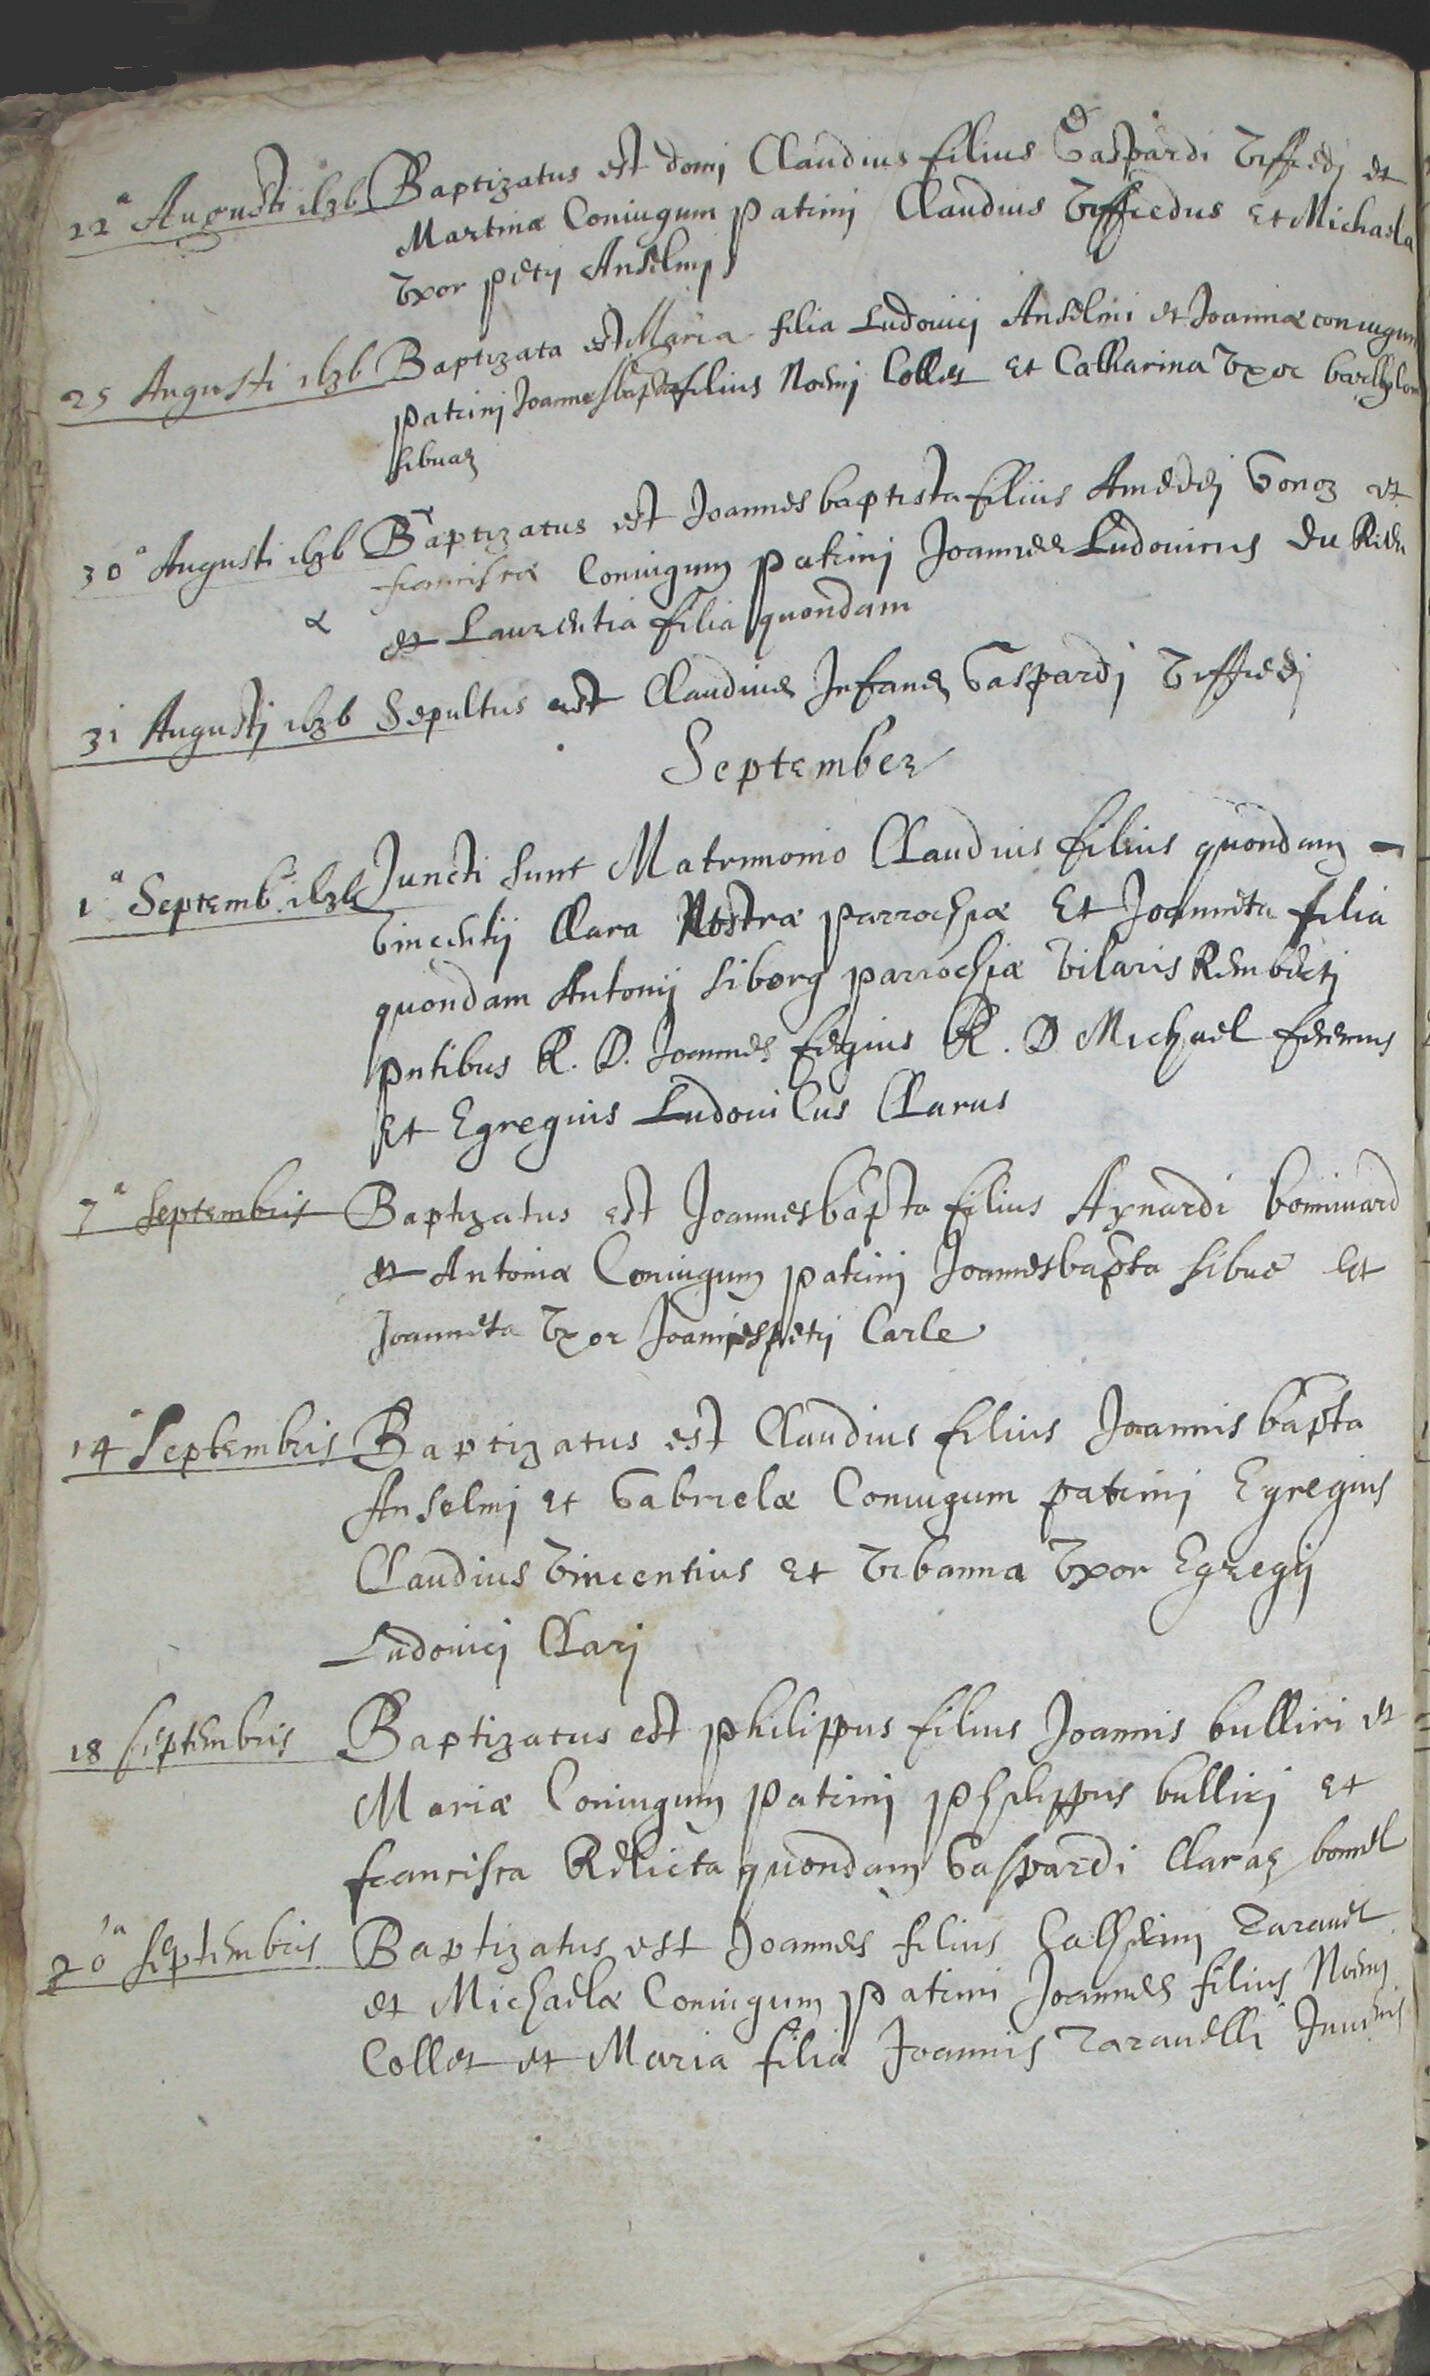 22a Augusti 1636 Baptizatus est domj Claudius filius Gaspardi Uffredj et
Martinæ Coniugum patrinj Claudius Uffredus Et Michaela
Uxor petrj Anselmj
25 Augusti 1636 Baptizata est Maria filia Ludovicj Anselmi et Joannæ coniugum
patrinj Joannesbapta filius Noemj Collet Et Catharina Uxor
sibuaz
30a Augusti 1636 Baptizatus est Joannesbaptista filius Amedej Gonoz et
franciscæ Coniugum patrinj Joannes Ludovicus du
et Laurentia filia quondam
31 Augustj 1636 Sepultus est Claudius Infans Gaspardj Uffredj
September
1a Septemb. 1636 Juncti sunt Matrimonio Claudius filius quondam
Vincentij Clara Nostræ parrochiæ Et Joanneta filia
quondam Antonij parrochiæ Vilaris
pntibus R. D. Joannes R. D Michael
Et Egregius Ludovicus Clarus
7a Septembris Baptizatus est Joannesbapta filius Aynardi bonivard
et Antoniæ Coniugum patrinj Joannesbapta sibue Et
Joanneta Uxor Joannespetrj Carle
14a Septembris Baptizatus est Claudius filius Joannis bapta
Anselmj et Gabrielæ Coniugum patrinj Egregius
Claudius Vincentius Et Urbanna Uxor Egregij
Ludovicj Clarj
18 septembris Baptizatus est philippus filius Joannis bulliri et
Mariæ Coniugum patrinj philippus bullirj et
francisca Relicta quondam Gaspardi Claraz
20a septembris Baptizatus est Joannes filius Taravel
et Michaelæ Coniugum patrini Joannes filius Noemj
Collet et Maria filia Joannis Taravelli Juvenis